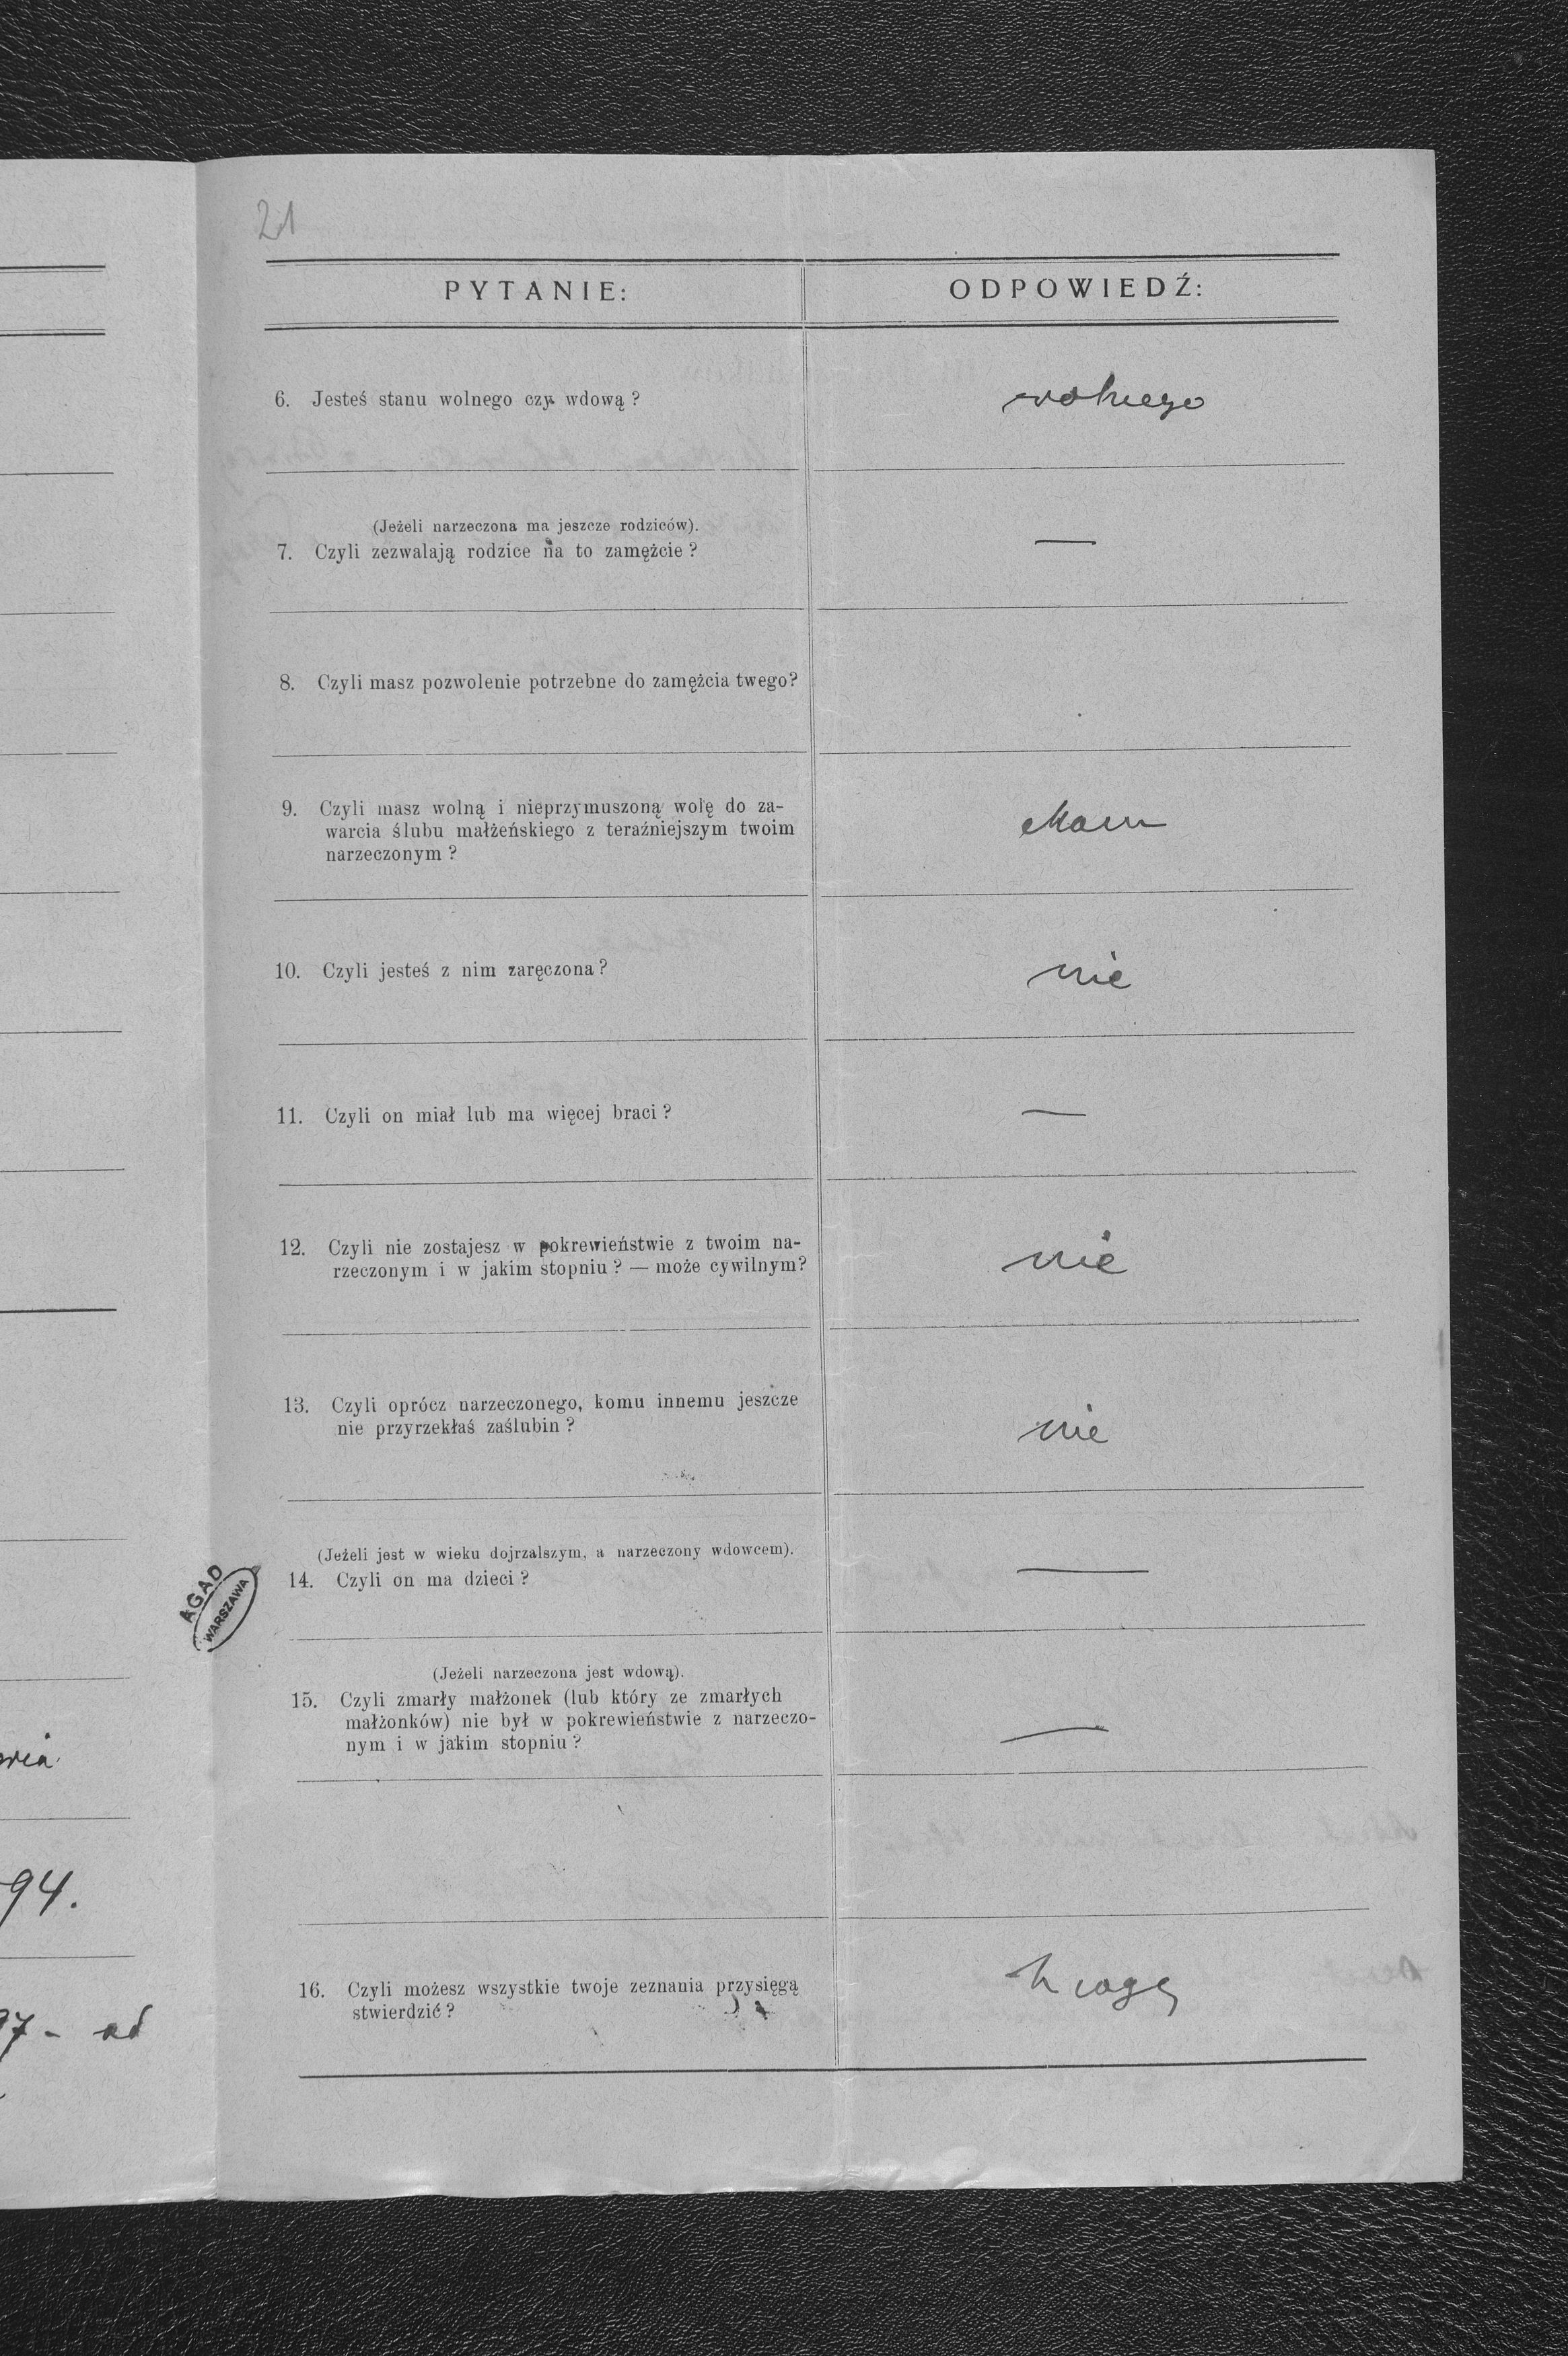 21
PYTANIE: ODPOWIEDŹ:
6. Jesteś stanu wolnego czy wdową? wolnego
(Jeżeli narzeczona ma jeszcze rodziców).
7. Czyli zezwalają rodzice na to zamężcie? —
8. Czyli masz pozwolenie potrzebne do zamężcia twego?
9. Czyli masz wolną i nieprzymuszoną wolę do za-
warcia ślubu małżeńskiego z teraźniejszym twoim
narzeczonym?
Mam
10. Czyli jesteś z nim zaręczona? nie
11. Czyli on miał lub ma więcej braci? —
12. Czyli nie zostajesz w pokrewieństwie z twoim na-
rzeczonym i w jakim stopniu? — może cywilnym?
nie
13. Czyli oprócz narzeczonego, komu innemu jeszcze
nie przyrzekłaś zaślubin?
nie
(Jeżeli jest w wieku dojrzalszym, a narzeczony wdowcem).
14. Czyli on ma dzieci? —
AGAD
WARSZAWA
(Jeżeli narzeczona jest wdową).
15. Czyli zmarły małżonek (lub który ze zmarłych
małżonków) nie był w pokrewieństwie z narzeczo-
nym i w jakim stopniu?
—
16. Czyli możesz wszystkie twoje zeznania przysięgą
stwierdzić?
Mogę
94.
97 - ad